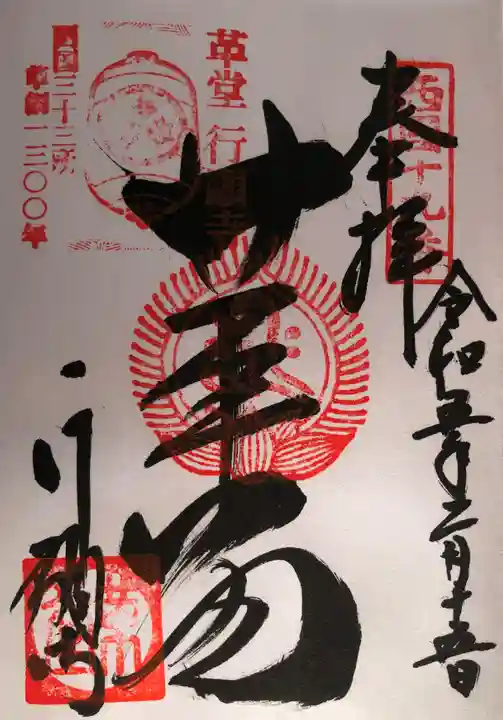 西国十九番
奉拝
令和五年二月十五日
革堂 行願寺
革堂
行願寺
西国三十三所
草創一三〇〇年